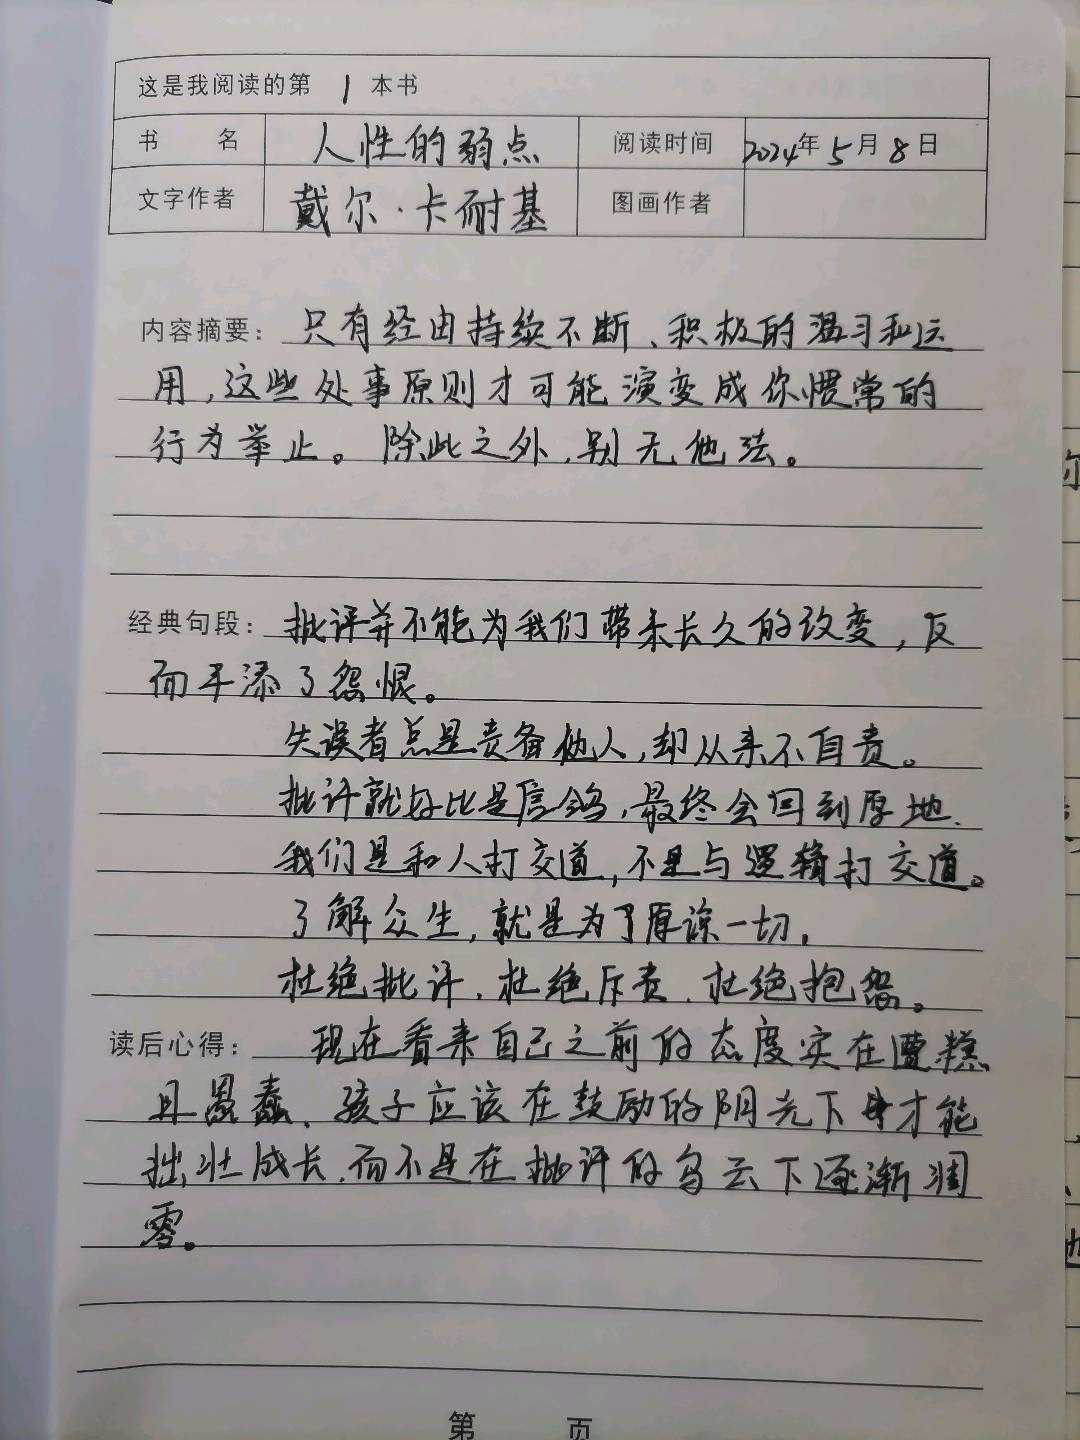 这是我阅读的第 1 本书
书 名 人性的弱点 阅读时间 2024年5月8日
文字作者 戴尔·卡耐基 图画作者
内容摘要： 只有经由持续不断、积极的温习和运
用，这些处事原则才可能演变成你惯常的
行为举止。除此之外，别无他法。
经典句段： 批评并不能为我们带来长久的改变，反
而平添了怨恨。
失误者总是责备他人，却从来不自责。
批评就好比是信鸽，最终会回到原地.
我们是和人打交道，不是与逻辑打交道。
了解众生，就是为了原谅一切，
杜绝批评、杜绝斥责、杜绝抱怨。
读后心得： 现在看来自己之前的态度实在遭糕
且愚蠢、孩子应该在鼓励的阴光下才能
拙壮成长，而不是在批评的乌云下逐渐凋
零。
第 页
你
他